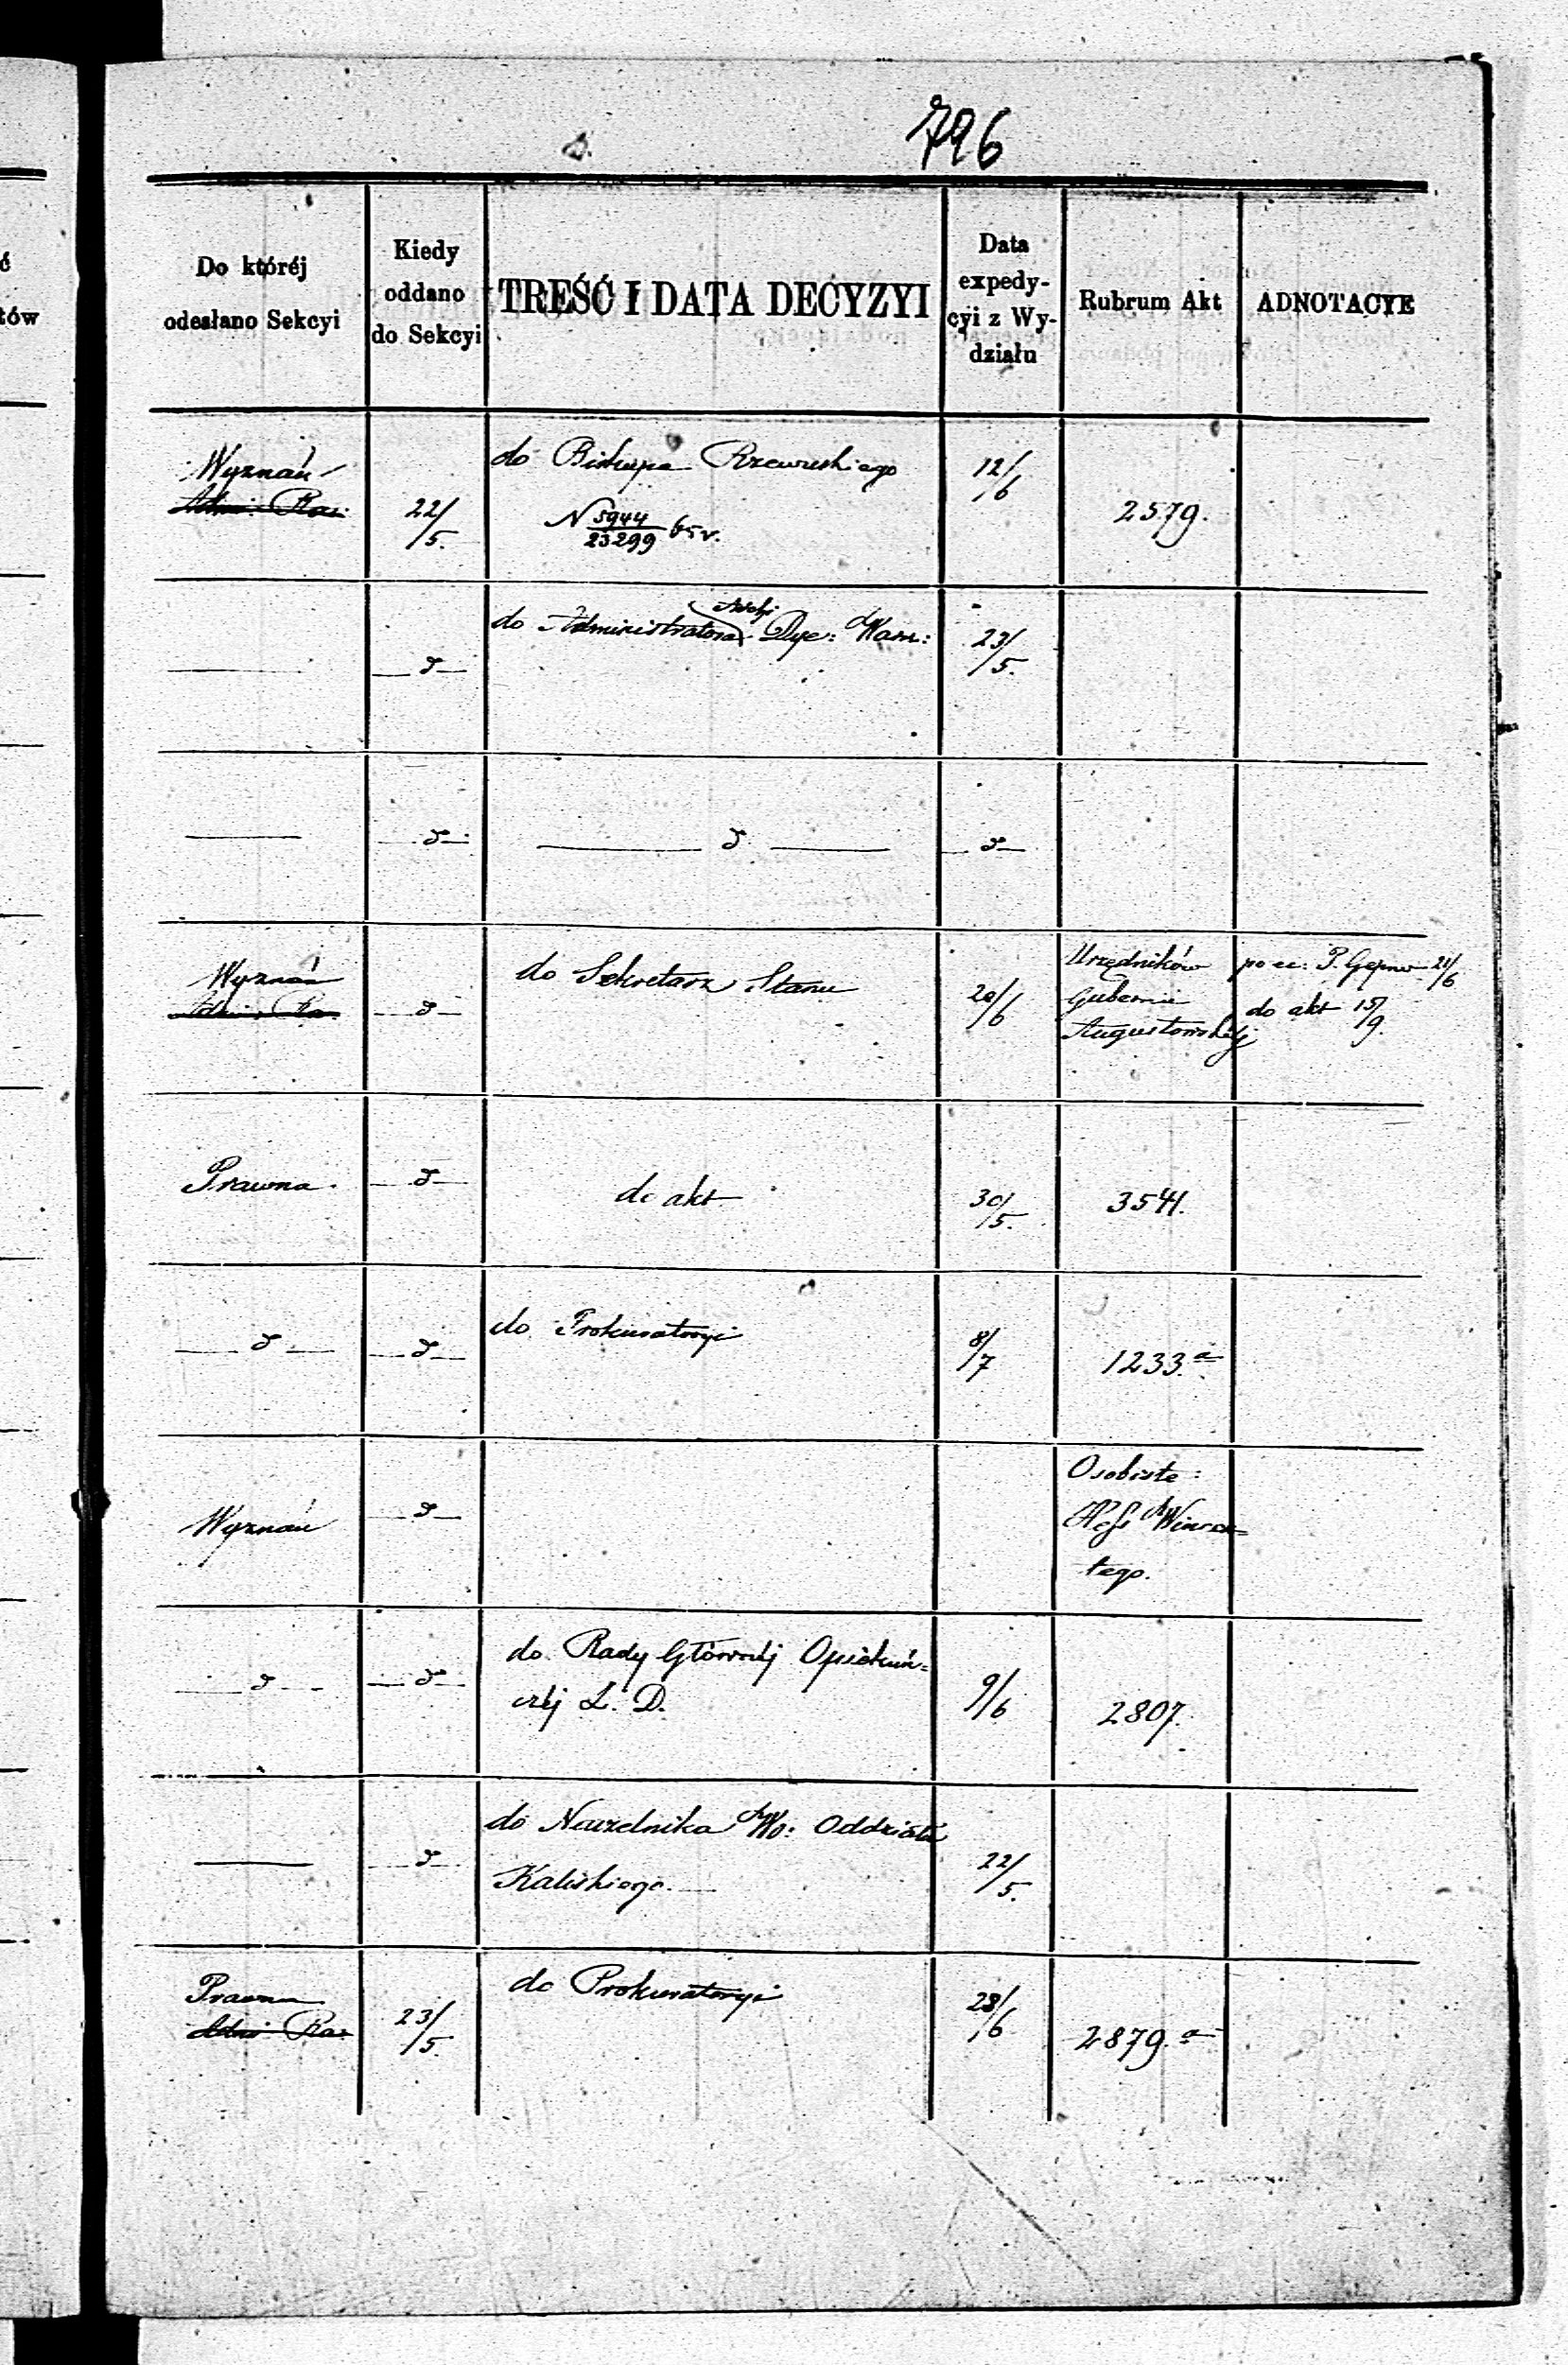 796
Do któréj
odesłano Sekcyi
Kiedy
oddano
do Sekcyi
TREŚĆ I DATA DECYZYI
Data
expedy-
cyi z Wy-
działu
Rubrum Akt
ADNOTACYE
Wyznań
22/5.
do Biskupa Rzewuskiego
N 5944/23299 65 r.
12/6
2579.
do Administratora Archi Dye: War:
23/5.
Wyznań
do Sekretarz Stanu
20/6
Urzędników
Gubernii
Augustowskiéj
21/6
do akt 15/9.
Prawna.
do akt
30/5.
3541.
do Prokuratoryi
8/7
1233.a
Wyznań
Osobiste:
Wincen=
tego.
do Rady Głównéj Opiekuń=
czéj Z. D.
9/6
2807.
do Naczelnika Wo: Oddziału
Kaliskiego.
22/5.
Prawna
23/5.
do Prokuratoryi
28/6
2879.a